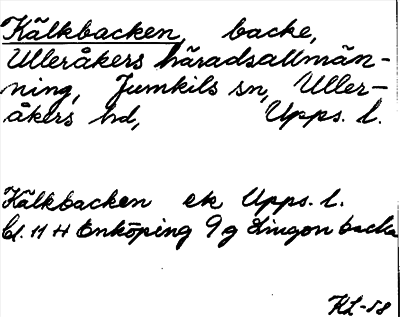 Kälkbacken, backe,
Ulleråkers häradsallmän-
ning, Jumkils sn, Uller-
åkers hd, Upps. l.
Kälkbacken ek Upps. l.
Bl. 11 H Enköping 9 g Lingonbacka
KL-58